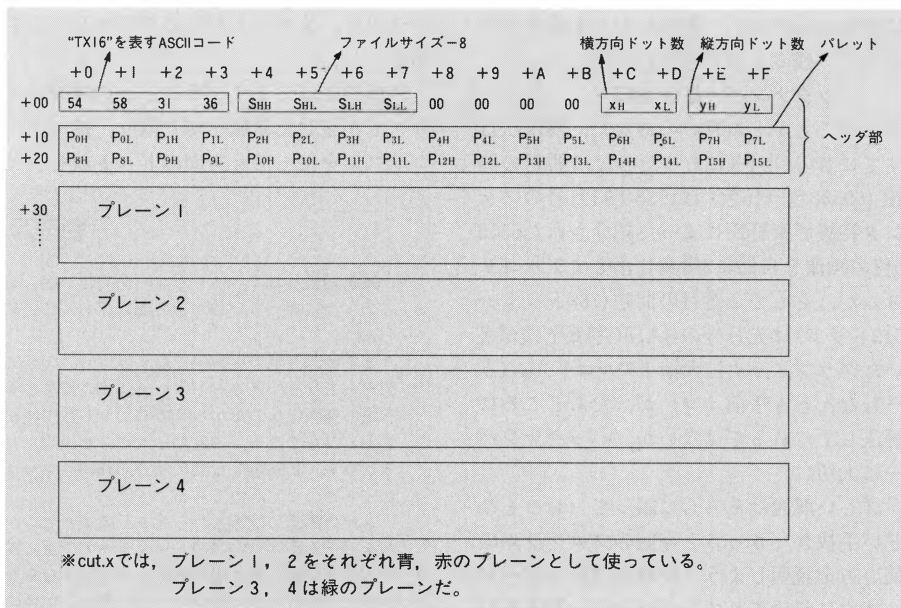 “TX16”を表すASCIIコード ファイルサイズ－8 横方向ドット数 縦方向ドット数 パレット
+0 +1 +2 +3 +4 +5 +6 +7 +8 +9 +A +B +C +D +E +F
+00 54 58 31 36 SHH SHL SLH SLL 00 00 00 00 xH xL yH yL ヘッダ部
+10 P0H P0L P1H P1L P2H P2L P3H P3L P4H P4L P5H P5L P6H P6L P7H P7L
+20 P8H P8L P9H P9L P10H P10L P11H P11L P12H P12L P13H P13L P14H P14L P15H P15L
+30 プレーン1
プレーン2
プレーン3
プレーン4
※cut.xでは，プレーン1，2をそれぞれ青，赤のプレーンとして使っている。
プレーン3，4は緑のプレーンだ。